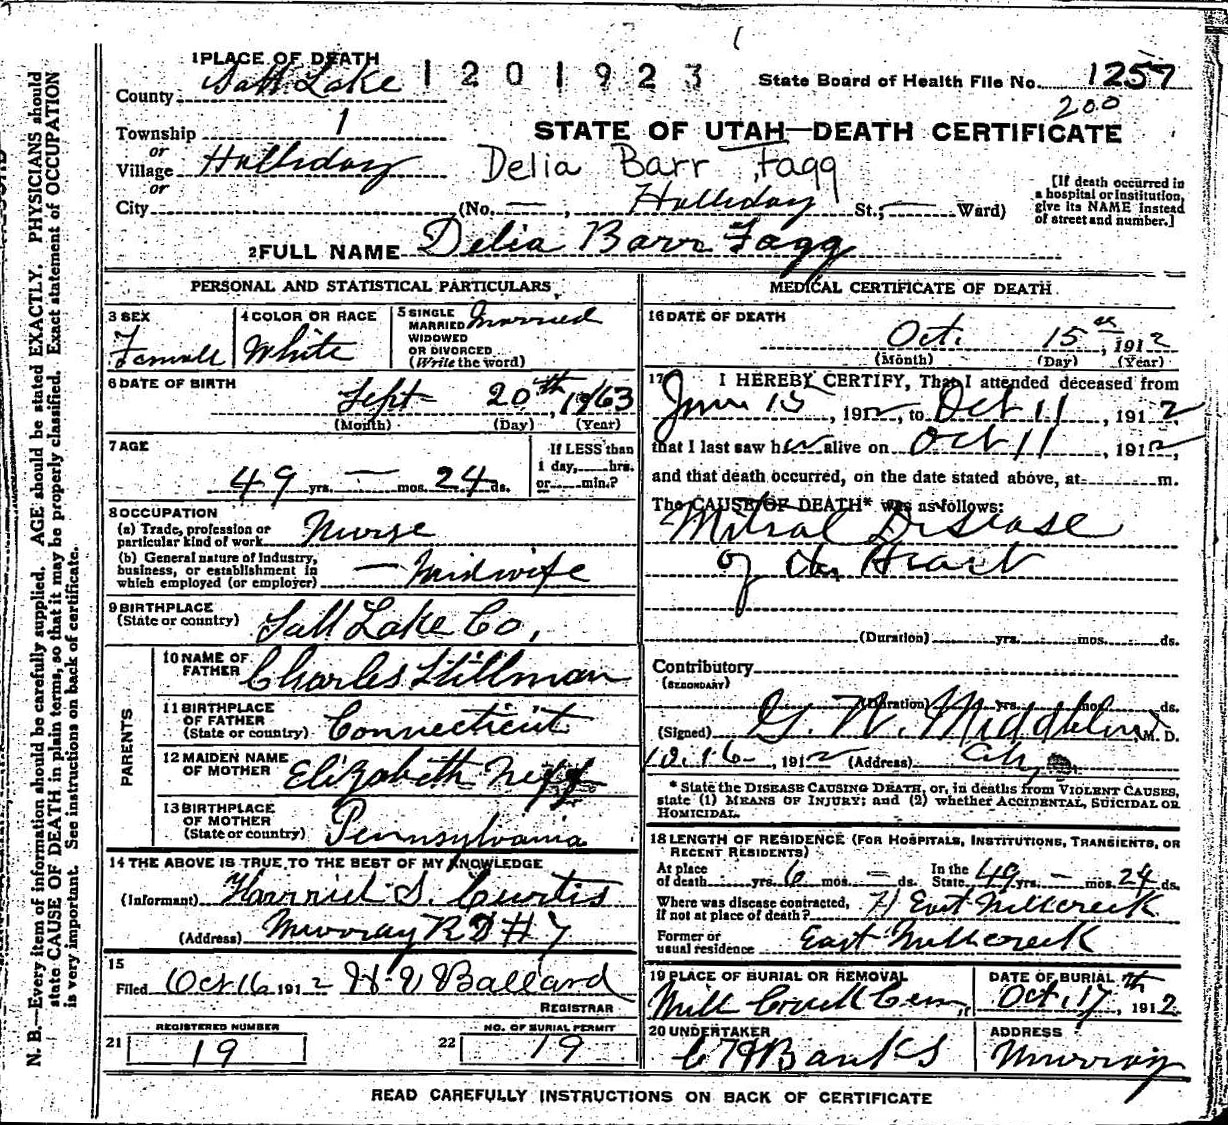 1 PLACE OF DEATH
1201923
State Board of Health File No. 1257
County Salt Lake
200
Township 1
STATE OF UTAH—DEATH CERTIFICATE
or
Village Halliday
Delia Barr Fagg
or
City (No. — , Halliday St.; — Ward)
[If death occurred in a hospital or institution, give its NAME instead of street and number.]
2 FULL NAME Delia Barr Fagg
PERSONAL AND STATISTICAL PARTICULARS
3 SEX Female
4 COLOR OR RACE White
5 SINGLE MARRIED WIDOWED OR DIVORCED (Write the word) Married
6 DATE OF BIRTH
Sept 20th, 1863
(Month) (Day) (Year)
7 AGE
49 yrs. — mos. 24 ds.
If LESS than 1 day, hrs. or min.?
8 OCCUPATION
(a) Trade, profession or particular kind of work Nurse
(b) General nature of Industry, business, or establishment in which employed (or employer) — Midwife
9 BIRTHPLACE (State or country) Salt Lake Co,
PARENTS
10 NAME OF FATHER Charles Stillman
11 BIRTHPLACE OF FATHER (State or country) Connecticut
12 MAIDEN NAME OF MOTHER Elizabeth Neff
13 BIRTHPLACE OF MOTHER (State or country) Pennsylvania
14 THE ABOVE IS TRUE TO THE BEST OF MY KNOWLEDGE
(Informant) Harriet S. Curtis
(Address) Murray RD #7
15
Filed Oct 16 1912 Ballard
REGISTRAR
REGISTERED NUMBER
21 19
NO. OF BURIAL PERMIT
22 19
MEDICAL CERTIFICATE OF DEATH
16 DATE OF DEATH
Oct. 15, 1912
(Month) (Day) (Year)
17 I HEREBY CERTIFY, That I attended deceased from
June 15, 1912, to Oct 11, 1912,
that I last saw her alive on Oct 11, 1912,
and that death occurred, on the date stated above, at m.
The CAUSE OF DEATH* was as follows:
Mitral Disease
of the Heart
(Duration) yrs. mos. ds.
Contributory
(SECONDARY)
(Duration) yrs. mos. ds.
(Signed) G. W. Middleton, M. D.
10.16, 1912 (Address) City
* State the DISEASE CAUSING DEATH, or, in deaths from VIOLENT CAUSES, state (1) MEANS OF INJURY; and (2) whether ACCIDENTAL, SUICIDAL OR HOMICIDAL.
18 LENGTH OF RESIDENCE (FOR HOSPITALS, INSTITUTIONS, TRANSIENTS, OR RECENT RESIDENTS)
At place of death yrs. 6 mos. = ds. In the State 49 yrs. — mos. 24 ds.
Where was disease contracted, if not at place of death? East Millcreek
Former or usual residence East Millcreek
19 PLACE OF BURIAL OR REMOVAL
Mill Creek Cem,
DATE OF BURIAL
Oct. 17th, 1912
20 UNDERTAKER
Banks
ADDRESS
Murray
READ CAREFULLY INSTRUCTIONS ON BACK OF CERTIFICATE
N. B.—Every item of information should be carefully supplied. AGE should be stated EXACTLY. PHYSICIANS should
state CAUSE OF DEATH in plain terms, so that it may be properly classified. Exact statement of OCCUPATION
is very important. See instructions on back of certificate.